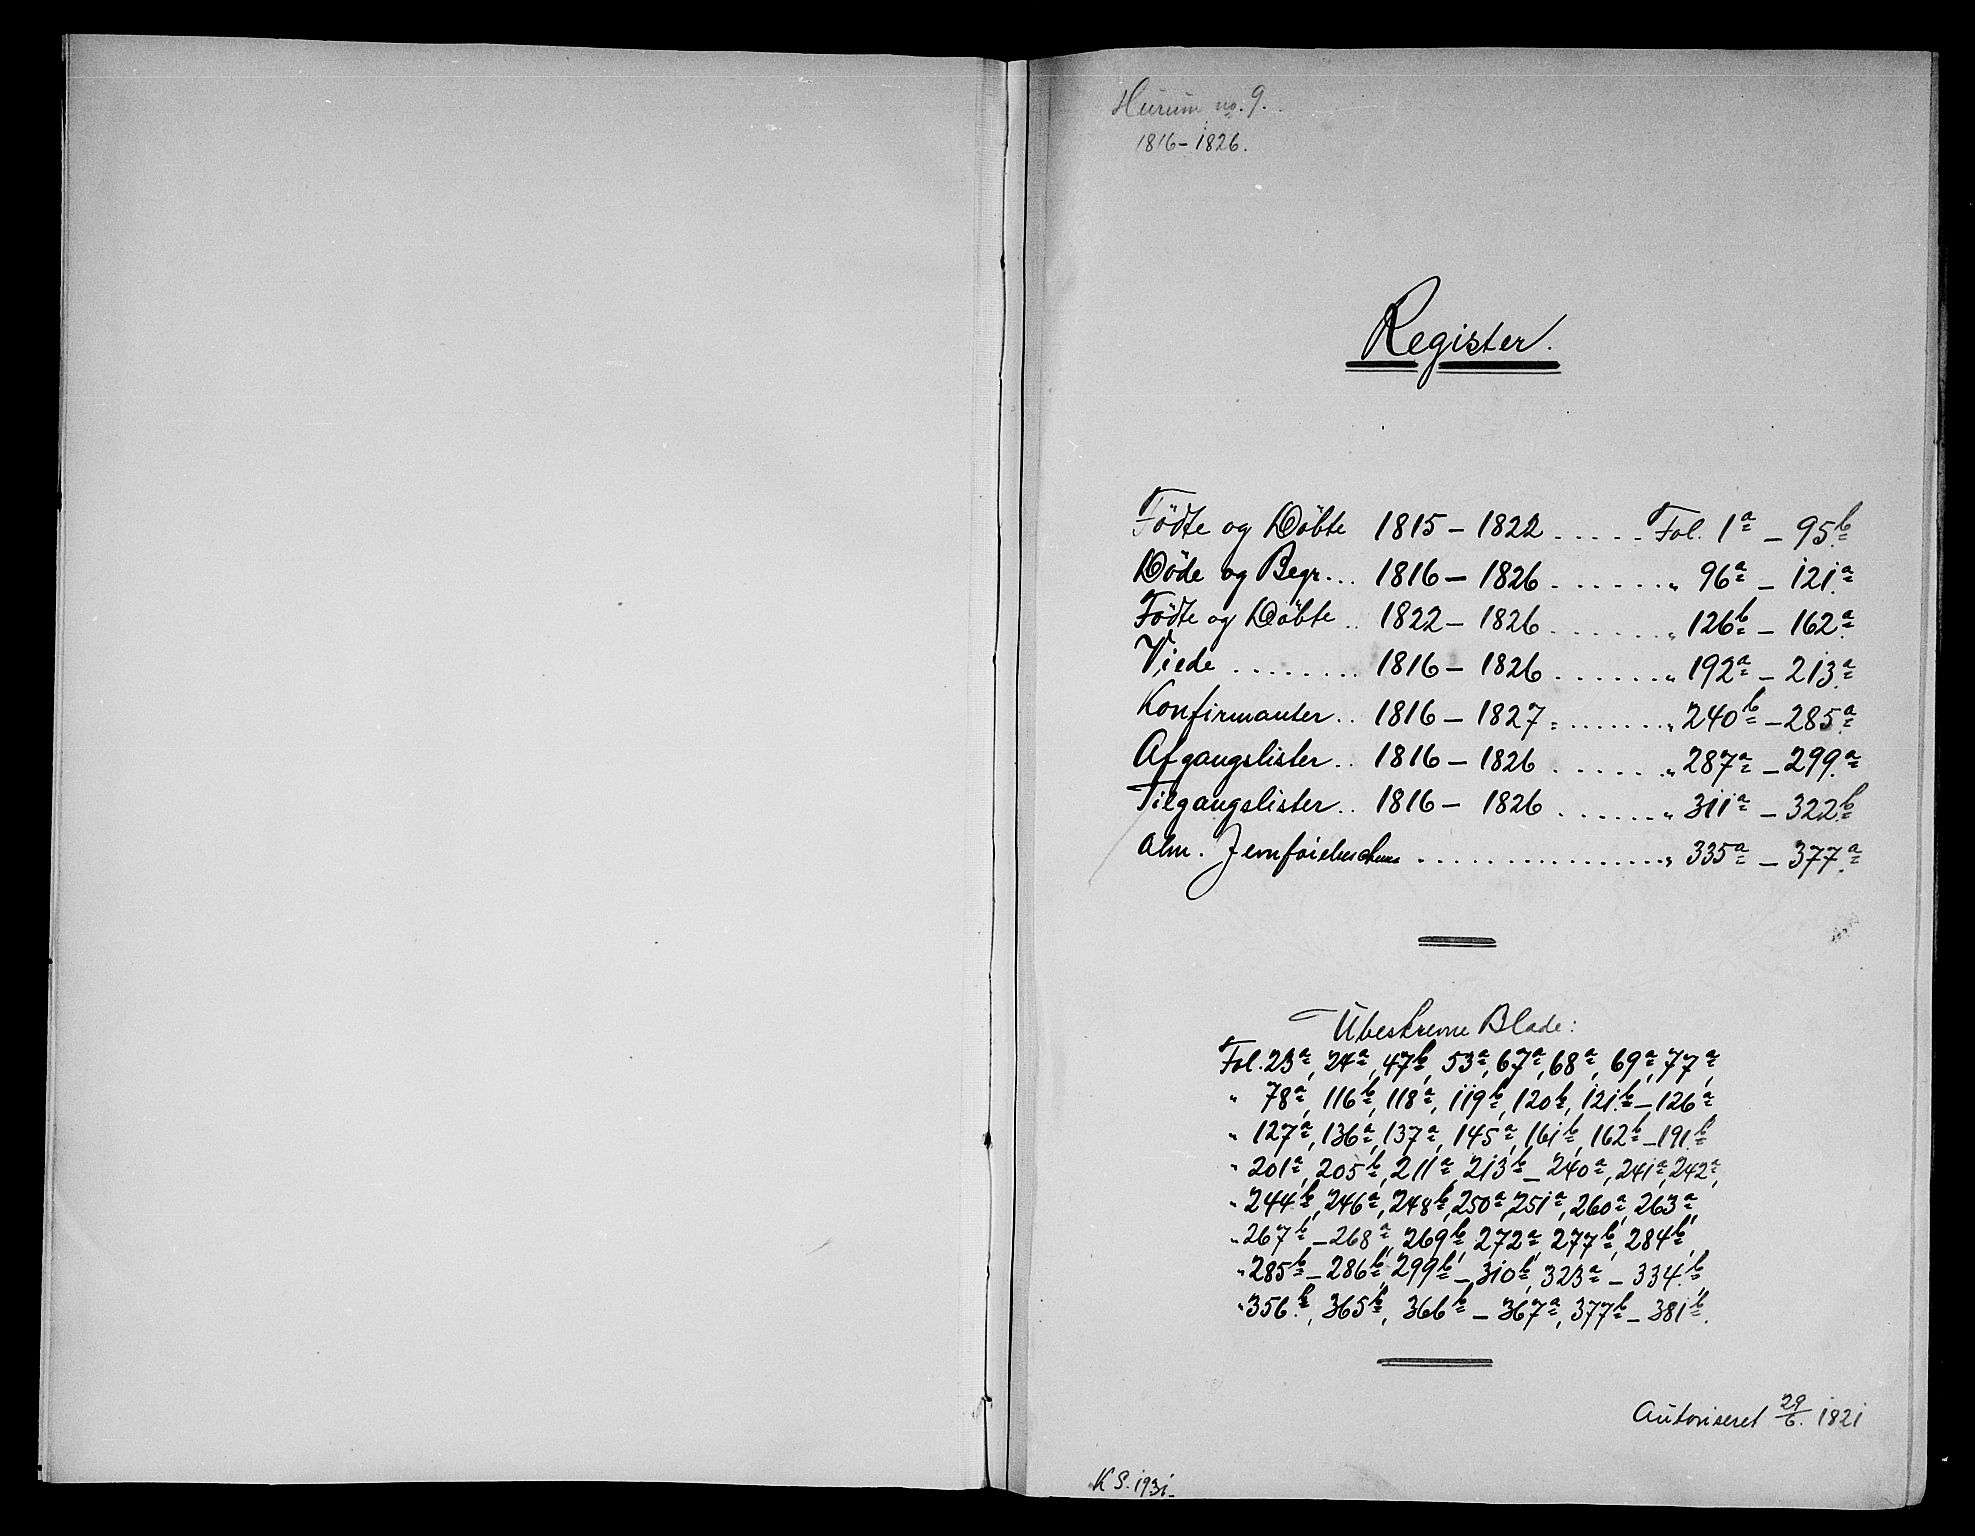 Hurum no. 9.
1816-1826.
Register.
Födte og Döbte 1815 - 1822 ..... Fol. 1a - 95b
Döde og Begr... 1816 - 1826 ...... " 96a - 121a
Födte og Döbte .. 1822 - 1826 ...... " 126b - 162a
Viede ........ 1816 - 1826 ...... " 192a - 213a
Konfirmanter .. 1816 - 1827 ....... " 240b - 285a
Afgangslister .. 1816 - 1826 ...... " 287a - 299a
Tilgangslister .. 1816 - 1826 ...... " 311a - 322b
Alm. ................ " 335a - 377a
Ubeskrevne Blade:
Fol. 23a, 24a, 47b, 53a, 67a, 68a, 69a, 77a,
" 78a, 116b, 118a, 119b, 120b, 121b - 126a
" 127a, 136a, 137a, 145a, 161b, 162b - 191b
" 201a, 205b, 211a, 213b - 240a, 241a, 242a,
" 244b, 246a, 248b, 250a, 251a, 260a, 263a
" 267b - 268a, 269b, 272a, 277b, 284b,
" 285b - 286b, 299b - 310b, 323a - 334b,
" 356b, 365b, 366b - 367a, 377b - 381b.
Autoriseret 29/6. 1821
K S. 1931.